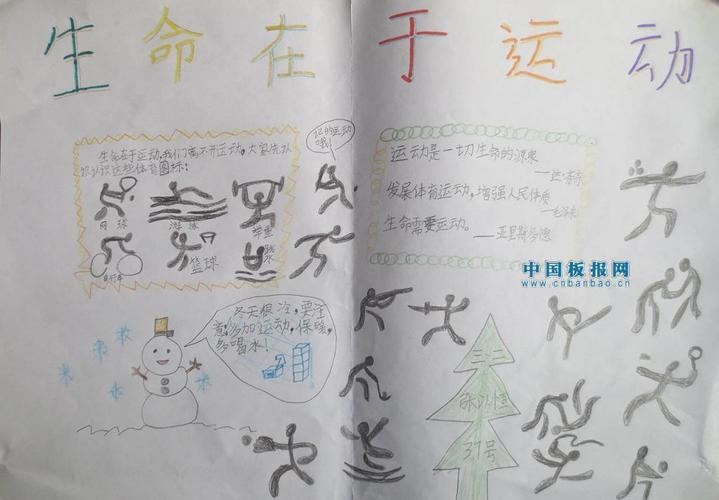 生命在于运动
生命在于运动,我们离不开运动,大家先认
识认识这些体育图标!
网球
游泳
举重
自行车
篮球
跳水
记的运动
哦!
运动是一切生命的源泉
——达·芬奇
发展体育运动,增强人民体质
——毛泽东
生命需要运动。——亚里斯多德
中国板报网
www.cnbanbao.cn
冬天很冷,要注
意:多加运动,保暖,
多喝水!
三二
37号